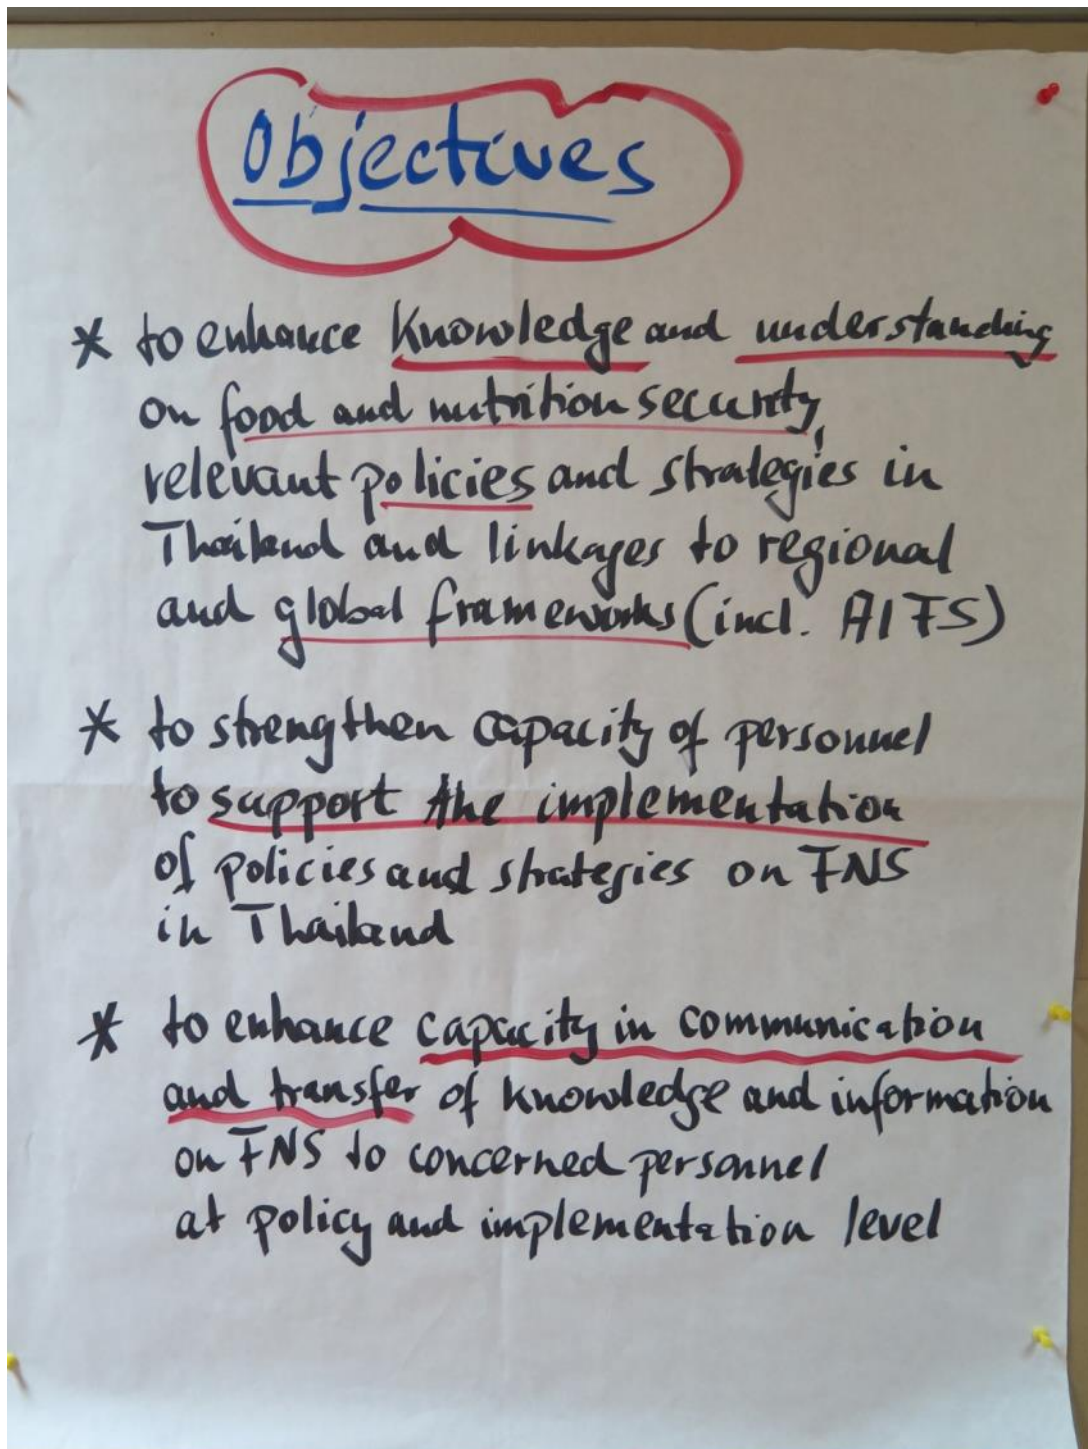 Objectives
* to enhance Knowledge and understanding
on food and nutrition security,
relevant policies and strategies in
Thailand and linkages to regional
and global frameworks (incl. AIFS)
* to strengthen capacity of personnel
to support the implementation
of policies and strategies on FNS
in Thailand
* to enhance capacity in communication
and transfer of knowledge and information
on FNS to concerned personnel
at policy and implementation level